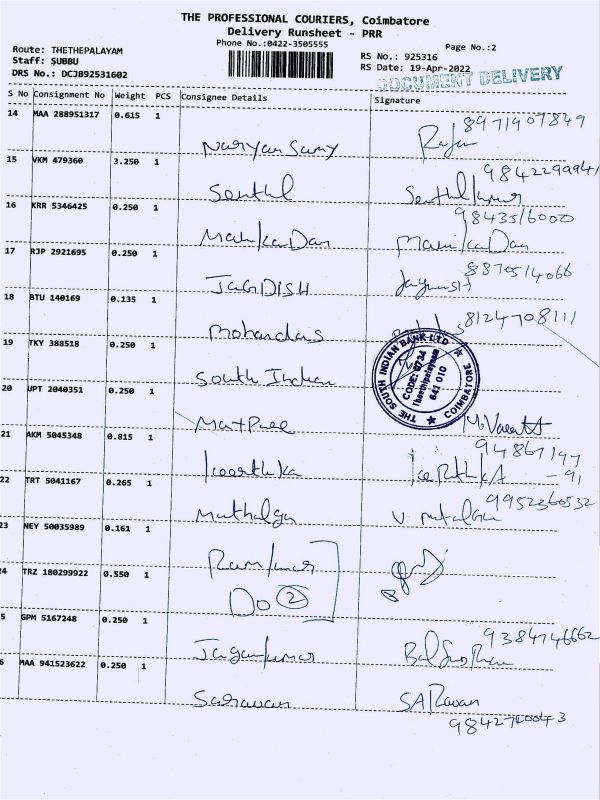 THE PROFESSIONAL COURIERS, Coimbatore
Delivery Runsheet - PRR
Phone No.:0422-3505555
Page No.:2
Route: THETHEPALAYAM
RS No.: 925316
Staff: SUBBU
RS Date: 19-Apr-2022
DRS No.: DCJB92531602
DOCUMENT DELIVERY
S No Consignment No Weight PCS Consignee Details Signature
14 MAA 288951317 0.615 1
8971907849
Naryan Samy Rajan
15 VKM 479360 3.250 1
9842299941
Senthil Senthil kumar
16 KRR 5346425 0.250 1
9843516000
Manikandan Manikandan
17 RJP 2921695 0.250 1
8870514066
JAGDISH
18 BTU 140169 0.135 1
8124708111
Mohandas
19 TKY 388518 0.250 1
South Indian
THE SOUTH INDIAN BANK LTD
CODE: 0734
Theethipalayam
641 010
COIMBATORE
20 UPT 2040351 0.250 1
21 AKM 5045348 0.815 1
94867197
- 91
Keerthika
22 TRT 5041167 0.265 1
9952360532
23 NEY 50035989 0.161 1
Ramkumar
24 TRZ 180299922 0.550 1
Do 2
5 GPM 5167248 0.250 1
9384746662
Jagankumar
6 MAA 941523622 0.250 1
Saravan SARavan